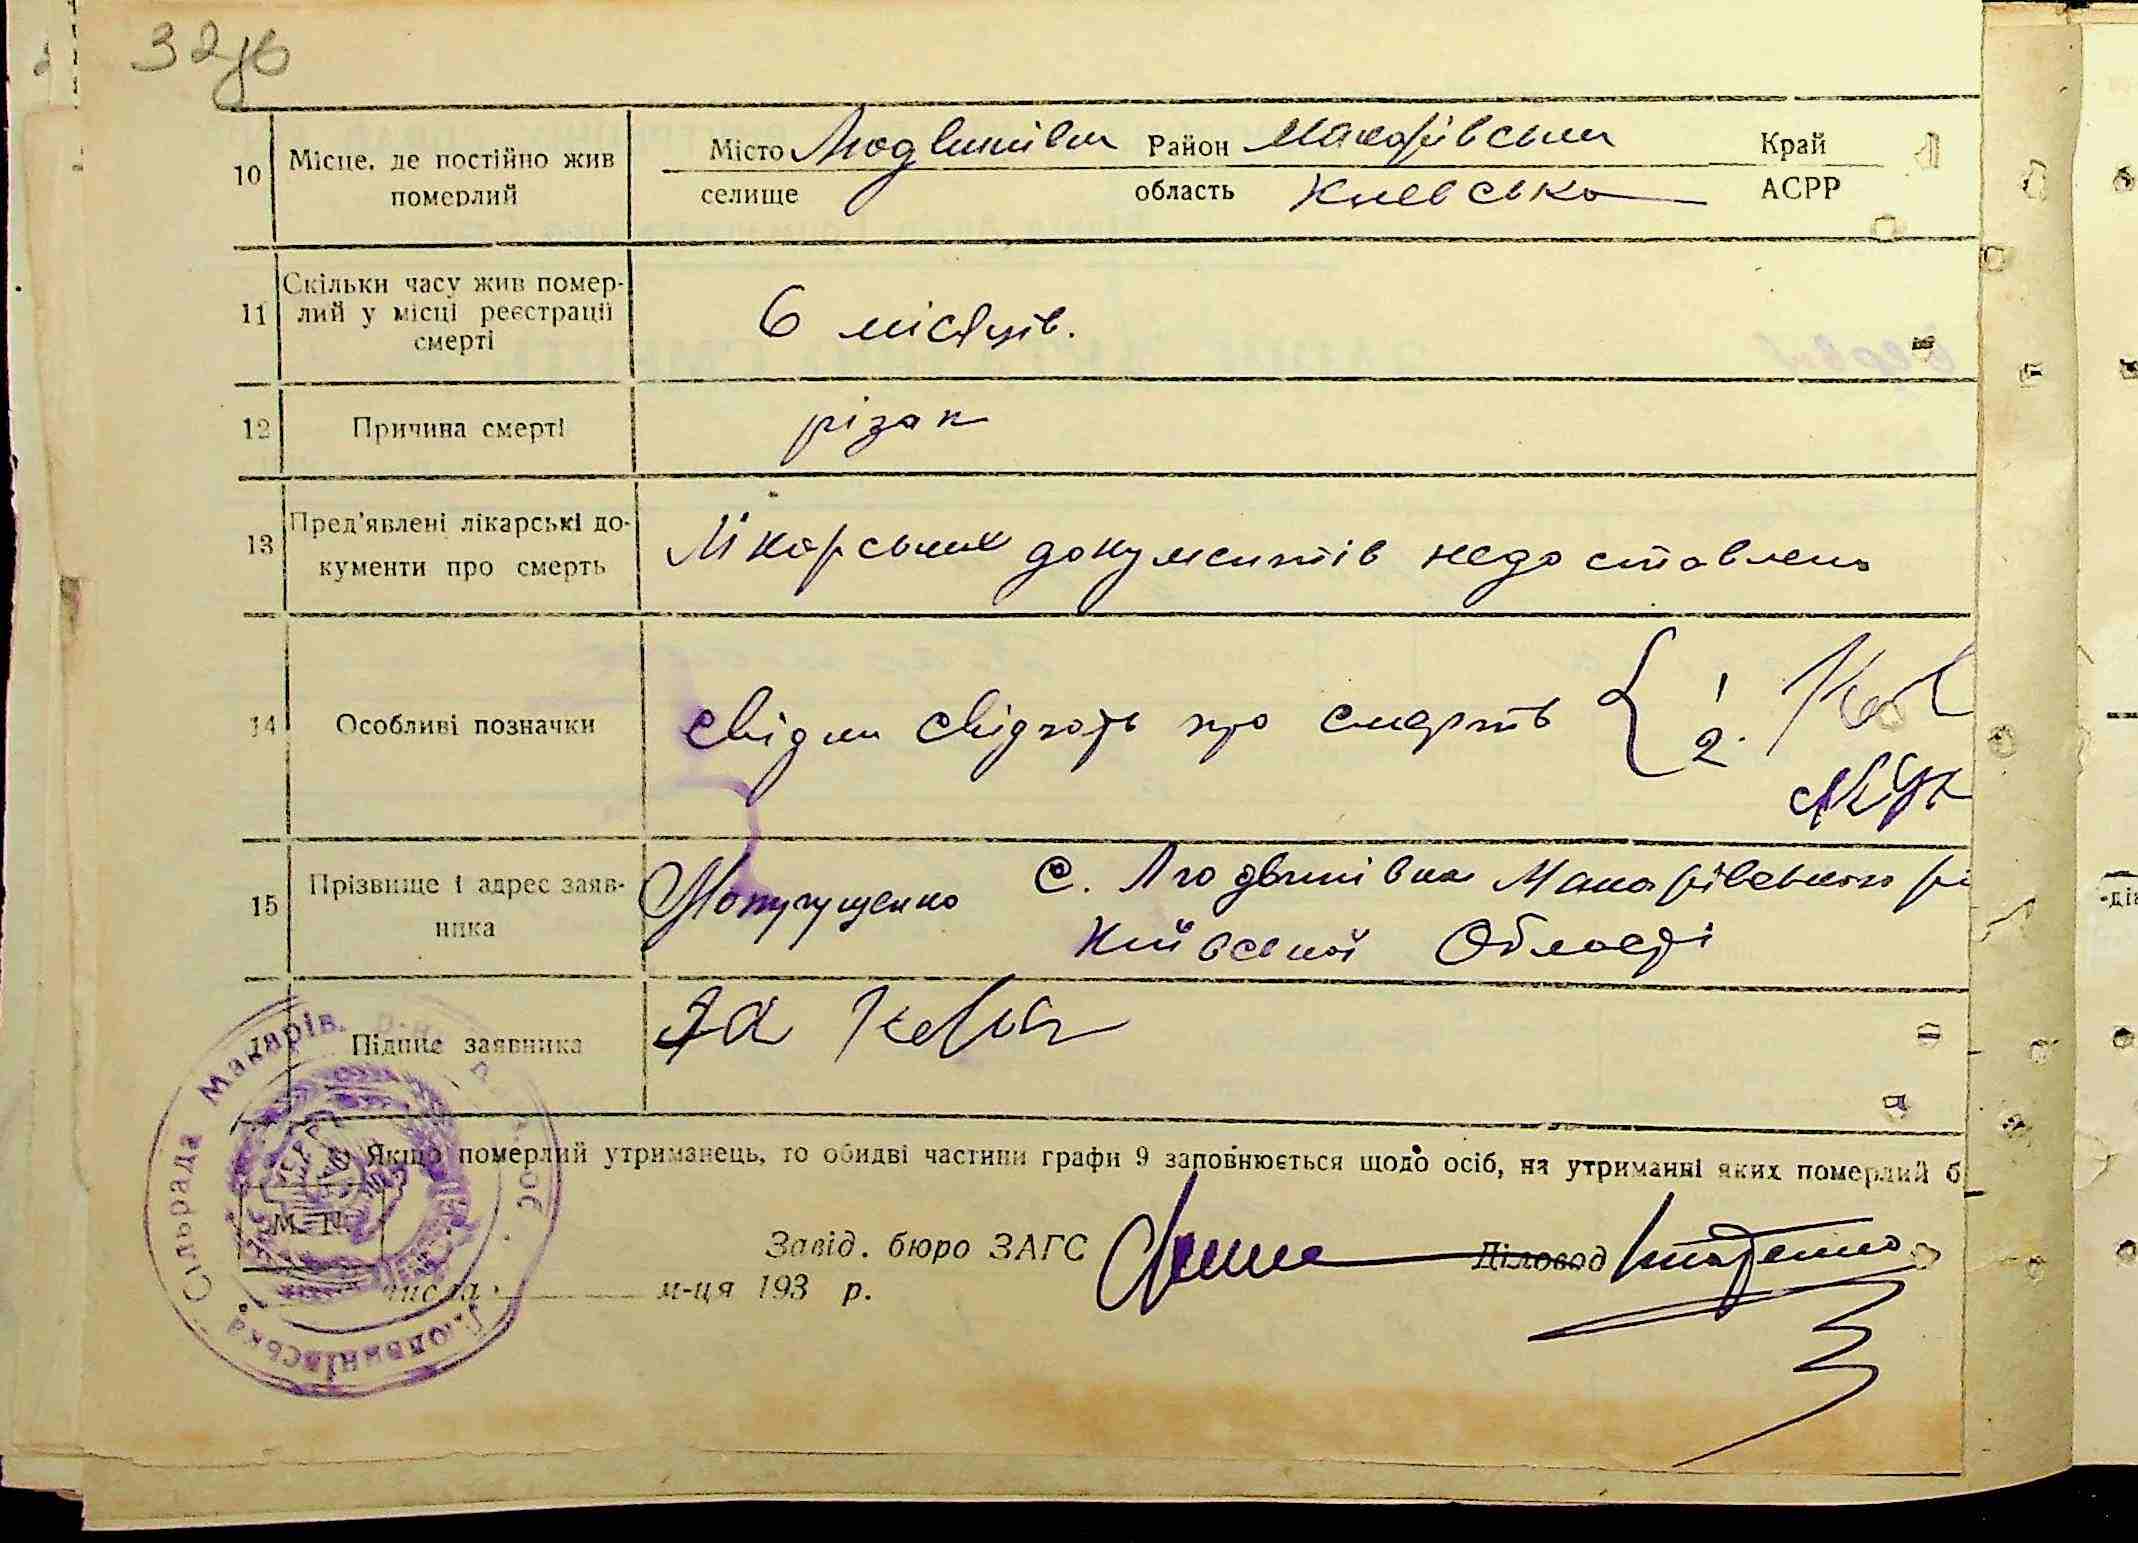 32зв
10 Місце, де постійно жив померлий
Місто Людвинівка Район Макарівськи Край
селище область Киевська АСРР
11 Скільки часу жив помер-
лий у місці реєстрації
смерті
6 місяців.
12 Причина смерті
різак
13 Пред'явлені лікарські до-
кументи про смерть
Лікарських документів недоставлено
14 Особливі позначки
свідки свідчать про смерть { 1
2.
15 Прізвище і адрес заяв-
ника
с. Людвинівка Макарівського р
Київської Області
Підпис заявника
За
Якщо померлий утриманець, то обидві частини графи 9 заповнюється щодо осіб, на утриманні яких померлий б
М. П.
Завід. бюро ЗАГС Діловод
числа м-ця 193 р.
Людвинівська Сільрада Макарів.